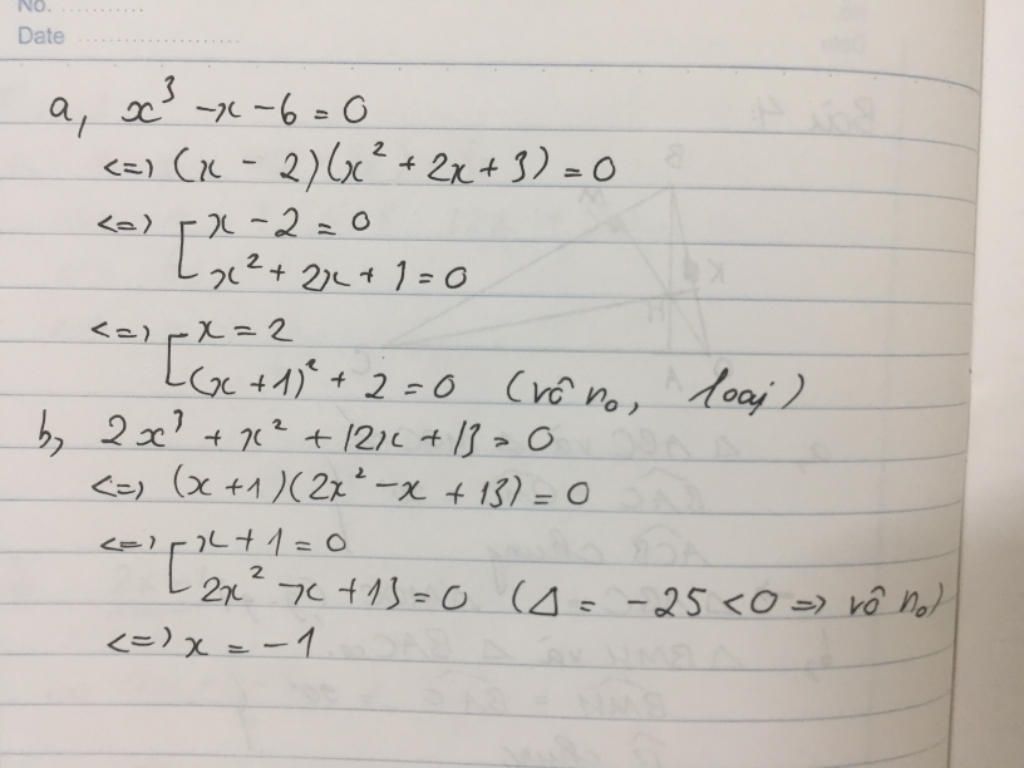 No. ............
Date ........................
a, x³ - x - 6 = 0
<=> (x - 2)(x² + 2x + 3) = 0
<=> [ x - 2 = 0
x² + 2x + 1 = 0
<=> [ x = 2
(x + 1)² + 2 = 0 (vô n₀, loaị)
b, 2x³ + x² + 12x + 13 = 0
<=> (x + 1)(2x² - x + 13) = 0
<=> [ x + 1 = 0
2x² - x + 13 = 0 (Δ = -25 < 0 => vô n₀)
<=> x = -1